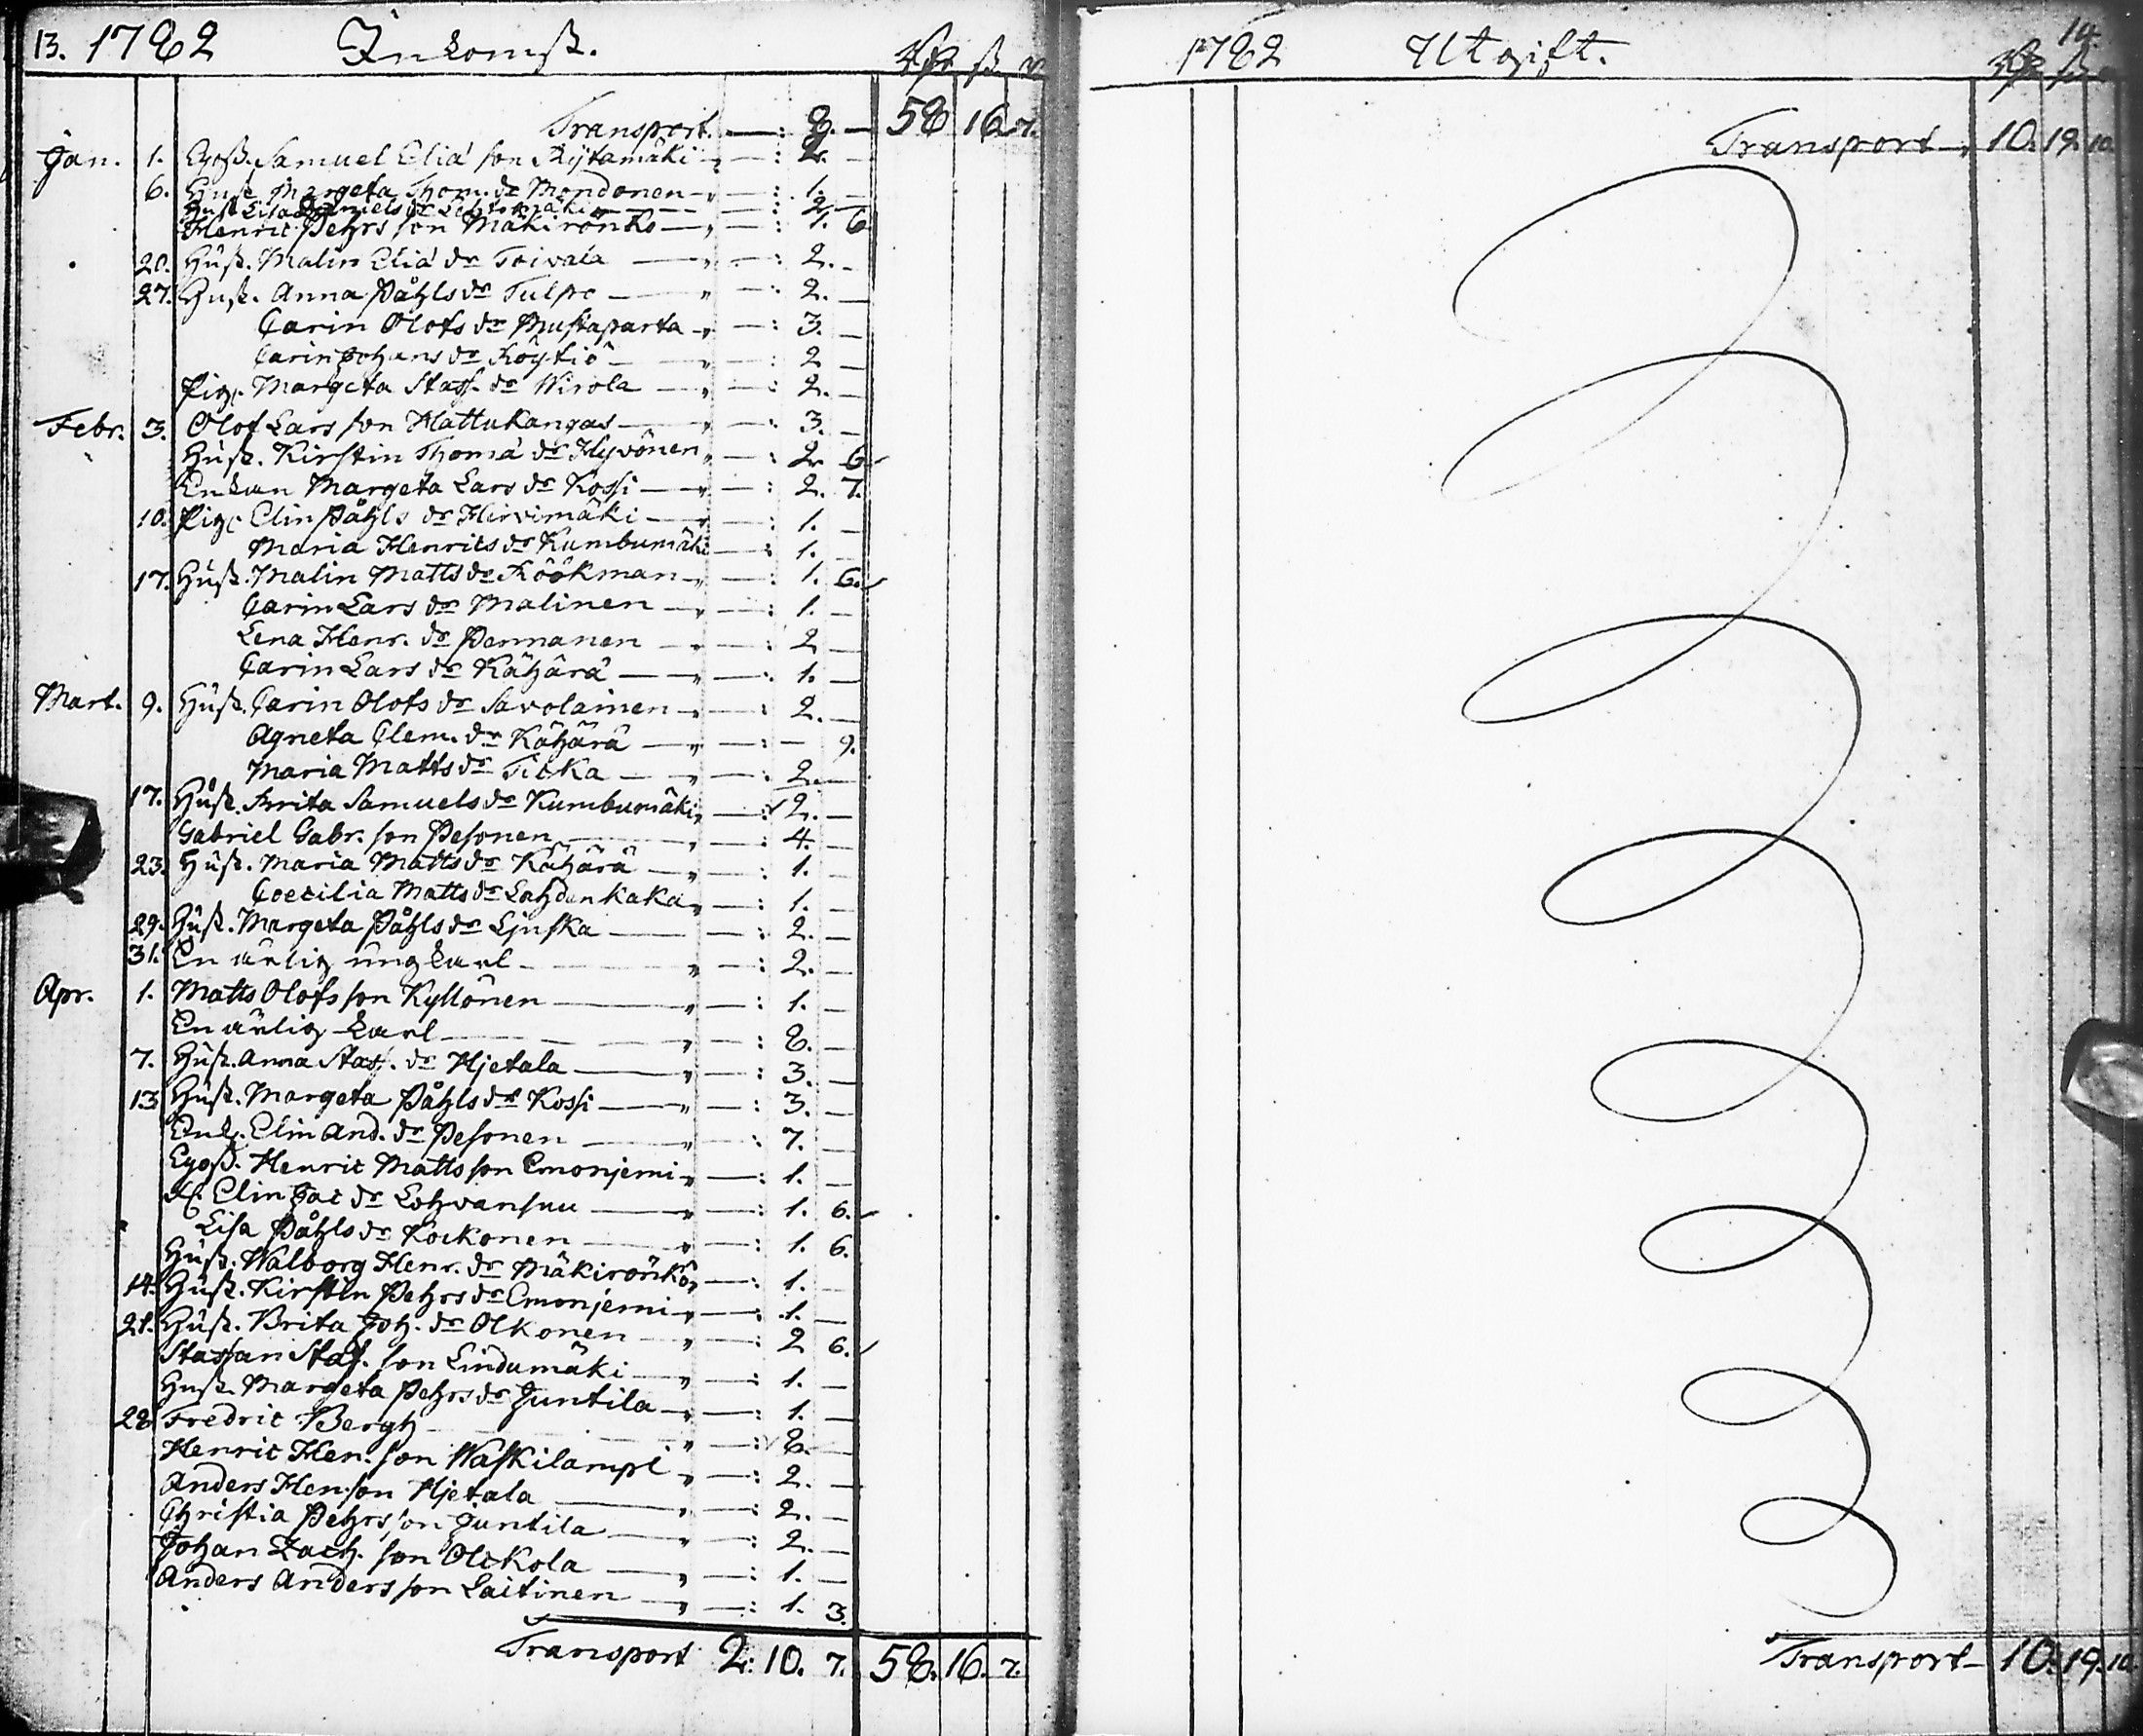 13. 1782 Inkomst. Rdr ß r.
Transport. — : 8. — 58. 16. 7.
Jan. 1. Samuel Eliæ son Rytämäki — : 2. —
6. Hust. Margeta Thom. dr Mondonen — : 1. —
Hust. Lisa Daniels dr Lehtomäki — : 2. —
Henric Pehrs son Mäkirönkö — : 1. 6.
20. Hust. Malin Eliæ dr Toivala — : 2. —
27. Hust. Anna Påhls dr Tulpo — : 2. —
Carin Olofs dr Mustaparta — : 3. —
Carin Johans dr Köytiö — : 2 —
Pig. Margeta Staff. dr Wirola — : 2. —
Febr. 3. Olof Lars son Hattukangas — : 3. —
Hust. Kirstin Thomæ dr Hyvönen — : 2. 6.
Enkan Margeta Lars dr Kossi — : 2. 7.
10. Pig. Elin Påhls dr Hirvimäki — : 1. —
Maria Henrics dr Kumbumäki — : 1. —
17. Hust. Malin Matts dr Röökman — : 1. 6.
Carin Lars dr Malinen — : 1. —
Lena Henr. dr Pennanen — : 2 —
Carin Lars dr Kähärä — : 1. —
Mart. 9. Hust. Carin Olofs dr Savolainen — : 2. —
Agneta Clem. dr Kähärä — : — 9.
Maria Matts dr Ticka — : 2. —
17. Hust. Brita Samuels dr Kumbumäki — : 2. —
Gabriel Gabr. son Pesonen — : 4. —
23. Hust. Maria Matts dr Kähärä — : 1. —
Coecilia Matts dr Lahdenkaka — : 1. —
29. Hust. Margeta Påhls dr Ljuska — : 2. —
31. En ärlig ung karl — : 2. —
Apr. 1. Matts Olofs son Kyllönen — : 1. —
En ärlig karl — : 8. —
7. Hust. Anna Staff. dr Hjetala — : 3. —
13 Hust. Margeta Påhls dr Kossi — : 3. —
Enk. Elin And. dr Pesonen — : 7. —
Henric Matts son Emonjemi — : 1. —
Elin Jac dr Lohvansuu — : 1. 6.
Lisa Påhls dr Kockonen — : 1. 6.
Hust. Walborg Henr. dr Mäkirönkö — : 1. —
14. Hust. Kirstin Pehrs dr Emonjemi — : 1. —
21. Hust. Brita Joh. dr Olkonen — : 2 6.
Staffan Staf. son Lindumäki — : 1. —
Hust. Margeta Pehrs dr Juntila — : 1. —
28 Fredric Bergh — : 8. —
Henric Hen. son Waskilampi — : 2. —
Anders Hen. son Hjetala — : 2. —
Christia Pehrs son Juntila — : 2. —
Johan Zach. son Olckola — : 1. —
Anders Anders son Laitinen — : 1. 3.
Transport 2: 10. 7. 58. 16. 7.
1782 Utgift. Rdr ß 14.
Transport — 10. 19. 10
Transport — 10. 19. 10